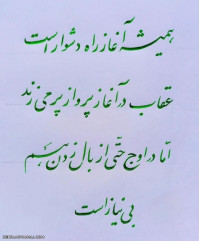 همیشه آغاز راه دشوار است
عقاب در آغاز پرواز پر می زند
اما در اوج حتّی از بال زدن هم
بی نیاز است